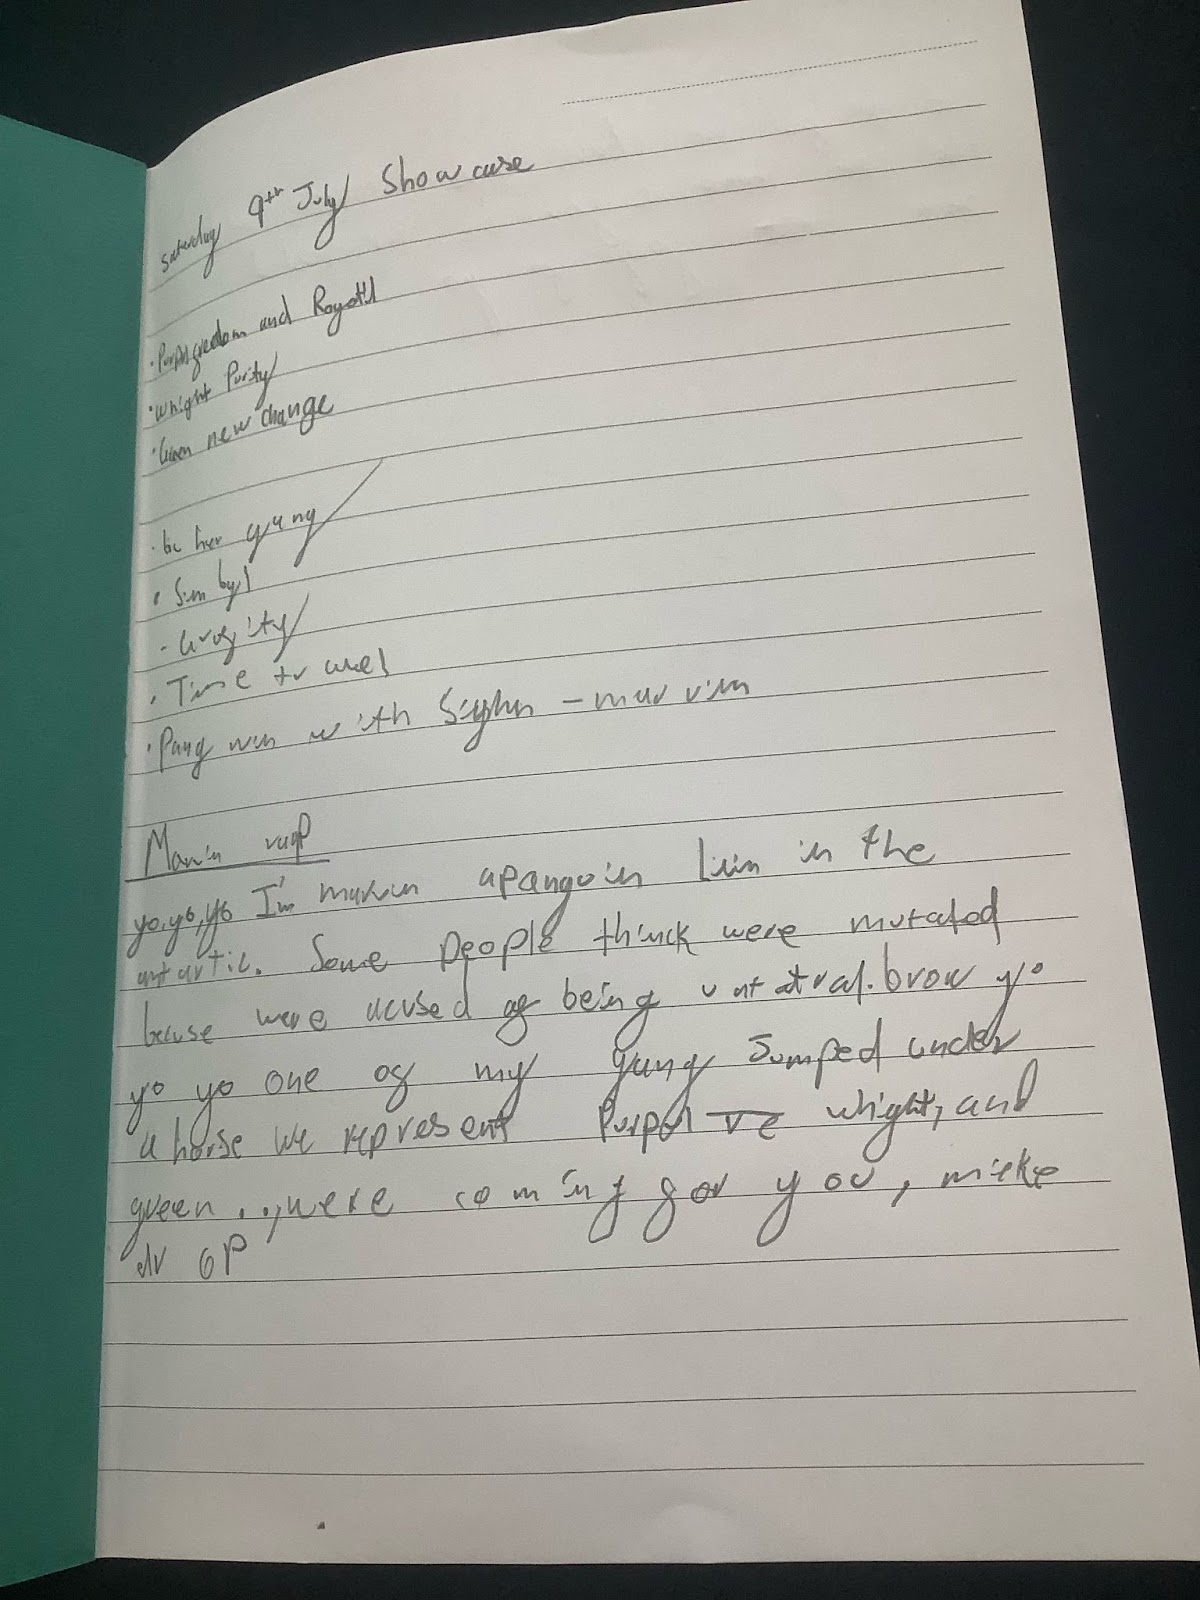 Saturday 9th July Showcase
· Purpol gredom and Royotil
· whight Purity
· Green new change
· gang
· Simbyl
- Gravity
· Time travel
· Pang win with Siyhn - marvin
Marvin rap
yo, yo, yo I'm marvin apangoin livin in the
antartic. Some people thinck were mutated
becuse were acused og being unatatral. brow yo
yo yo one og my gang Jumped under
a horse we represent Purpol whight, and
green .., were coming gor you, micke
drop